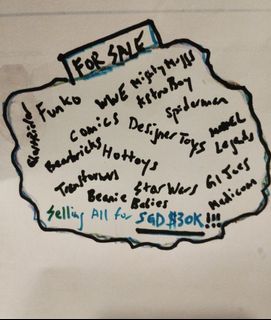 FOR SALE
Funko
WWE
Mighty Muggs
Astro Boy
Spiderman
Comics
Designer Toys
MARVEL
Legends
Bearbricks
Hottoys
Transformers
Star Wars
GI Joes
Medicom
Beanie Babies
Selling All for SGD $30K!!!